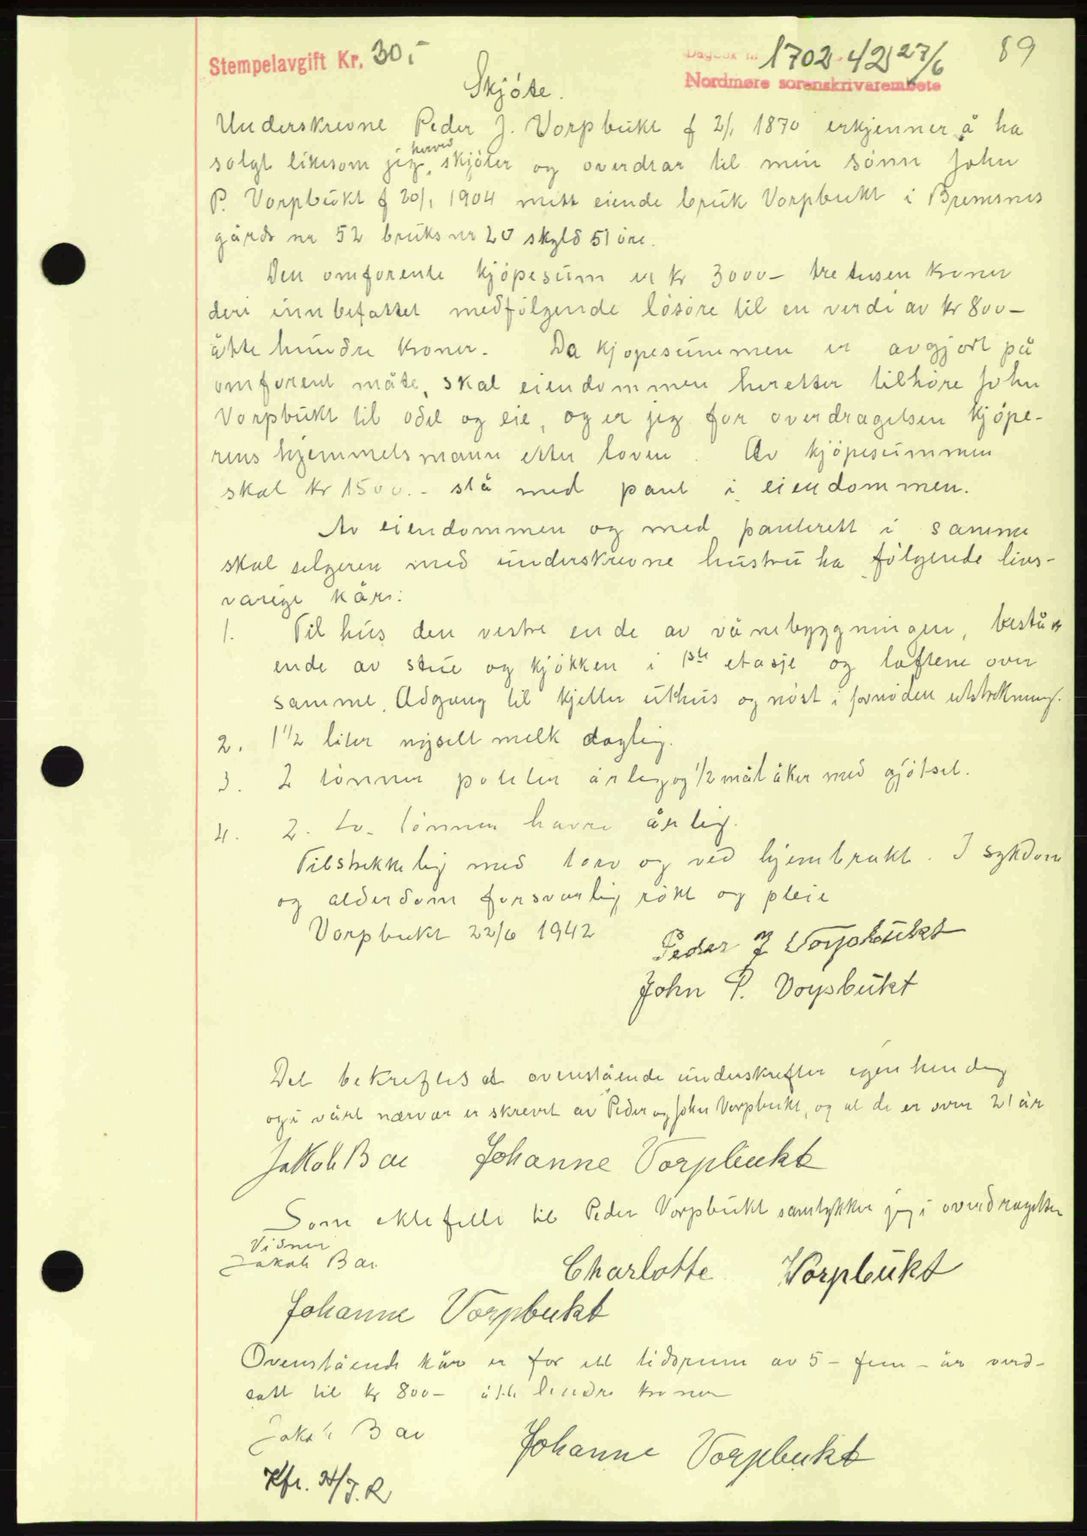 Stempelavgift Kr. 30,-
1702-42 27/6
89
Nordmøre sorenskrivarembete
Skjöte.
Underskrevne Peder J. Vorpbukt f 2/1 1870 erkjenner å ha
solgt likesom jeg herved skjöter og overdrar til min sönn John
P. Vorpbukt f 20/1 1904 mitt eiende bruk Vorpbukt i Bremsnes
gårds nr 52 bruks nr 20 skyld 51 öre.
Den omforente kjöpesum er kr 3000- tre tusen kroner
deri innbefattet medfölgende lösöre til en verdi av kr 800-
åtte hundre kroner. Da kjöpesummen er avgjort på
omforent måte, skal eiendommen heretter tilhöre John
Vorpbukt til odel og eie, og er jeg for overdragelsen kjöpe-
rens hjemmelsmann etter loven. Av kjöpesummen
skal kr 1500.- stå med pant i eiendommen.
Av eiendommen og med panterett i samme
skal selgeren med underskrevne hustru ha fölgende livs-
varige kår:
1. Til hus den vestre ende av vånebygningen, bestå
ende av stue og kjökken i 1ste etasje og loftene over
samme. Adgang til kjeller uthus og nöst i fornöden utstrekning.
2. 1 1/2 liter nysilt melk daglig.
3. 2 tönner poteter årleg og 1/2 mål åker med gjötsel.
4. 2. to. tönner havre årlig.
Tilstrekkelig med torv og ved hjembrakt. I sykdom
og alderdom forsvarlig rökt og pleie
Vorpbukt 22/6 1942
Peder J Vorpbukt
John P. Vorpbukt
Det bekreftes at ovenstående underskrefter egenhendig
og i vårt nærvær er skrevet av Peder og John Vorpbukt, og at de er over 21 år
Jakob Bae Johanne Vorpbukt
Som ektefelle til Peder Vorpbukt samtykker jeg i overdragelsen
Vidner
Jakob Bae
Charlotte Vorpbukt
Johanne Vorpbukt
Ovenstående kår er for ett tidsrum av 5- fem - år verd-
satt til kr 800- åtte hundre kroner
Jakob Bae
Johanne Vorpbukt
Kfr.